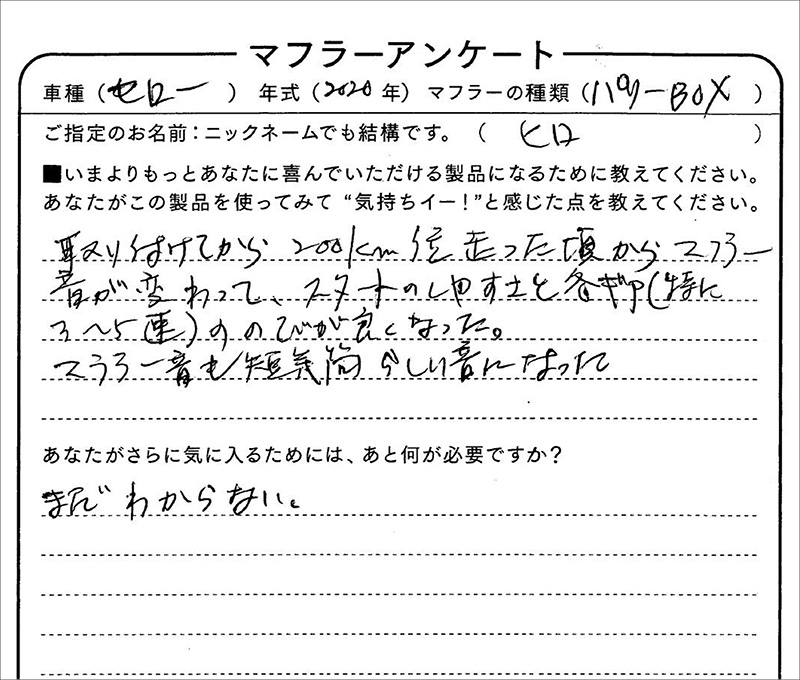 マフラーアンケート
車種（セロー）年式（2020年）マフラーの種類（パワーBOX）
ご指定のお名前：ニックネームでも結構です。（ヒロ）
■いまよりもっとあなたに喜んでいただける製品になるために教えてください。
あなたがこの製品を使ってみて“気持ちイー！”と感じた点を教えてください。
取り付けてから200km位走った頃からマフラー
音が変わって、スタートのしやすさと各ギア（特に
3～5速）ののびが良くなった。
マフラー音も短気筒らしい音になった
あなたがさらに気に入るためには、あと何が必要ですか？
まだわからない。